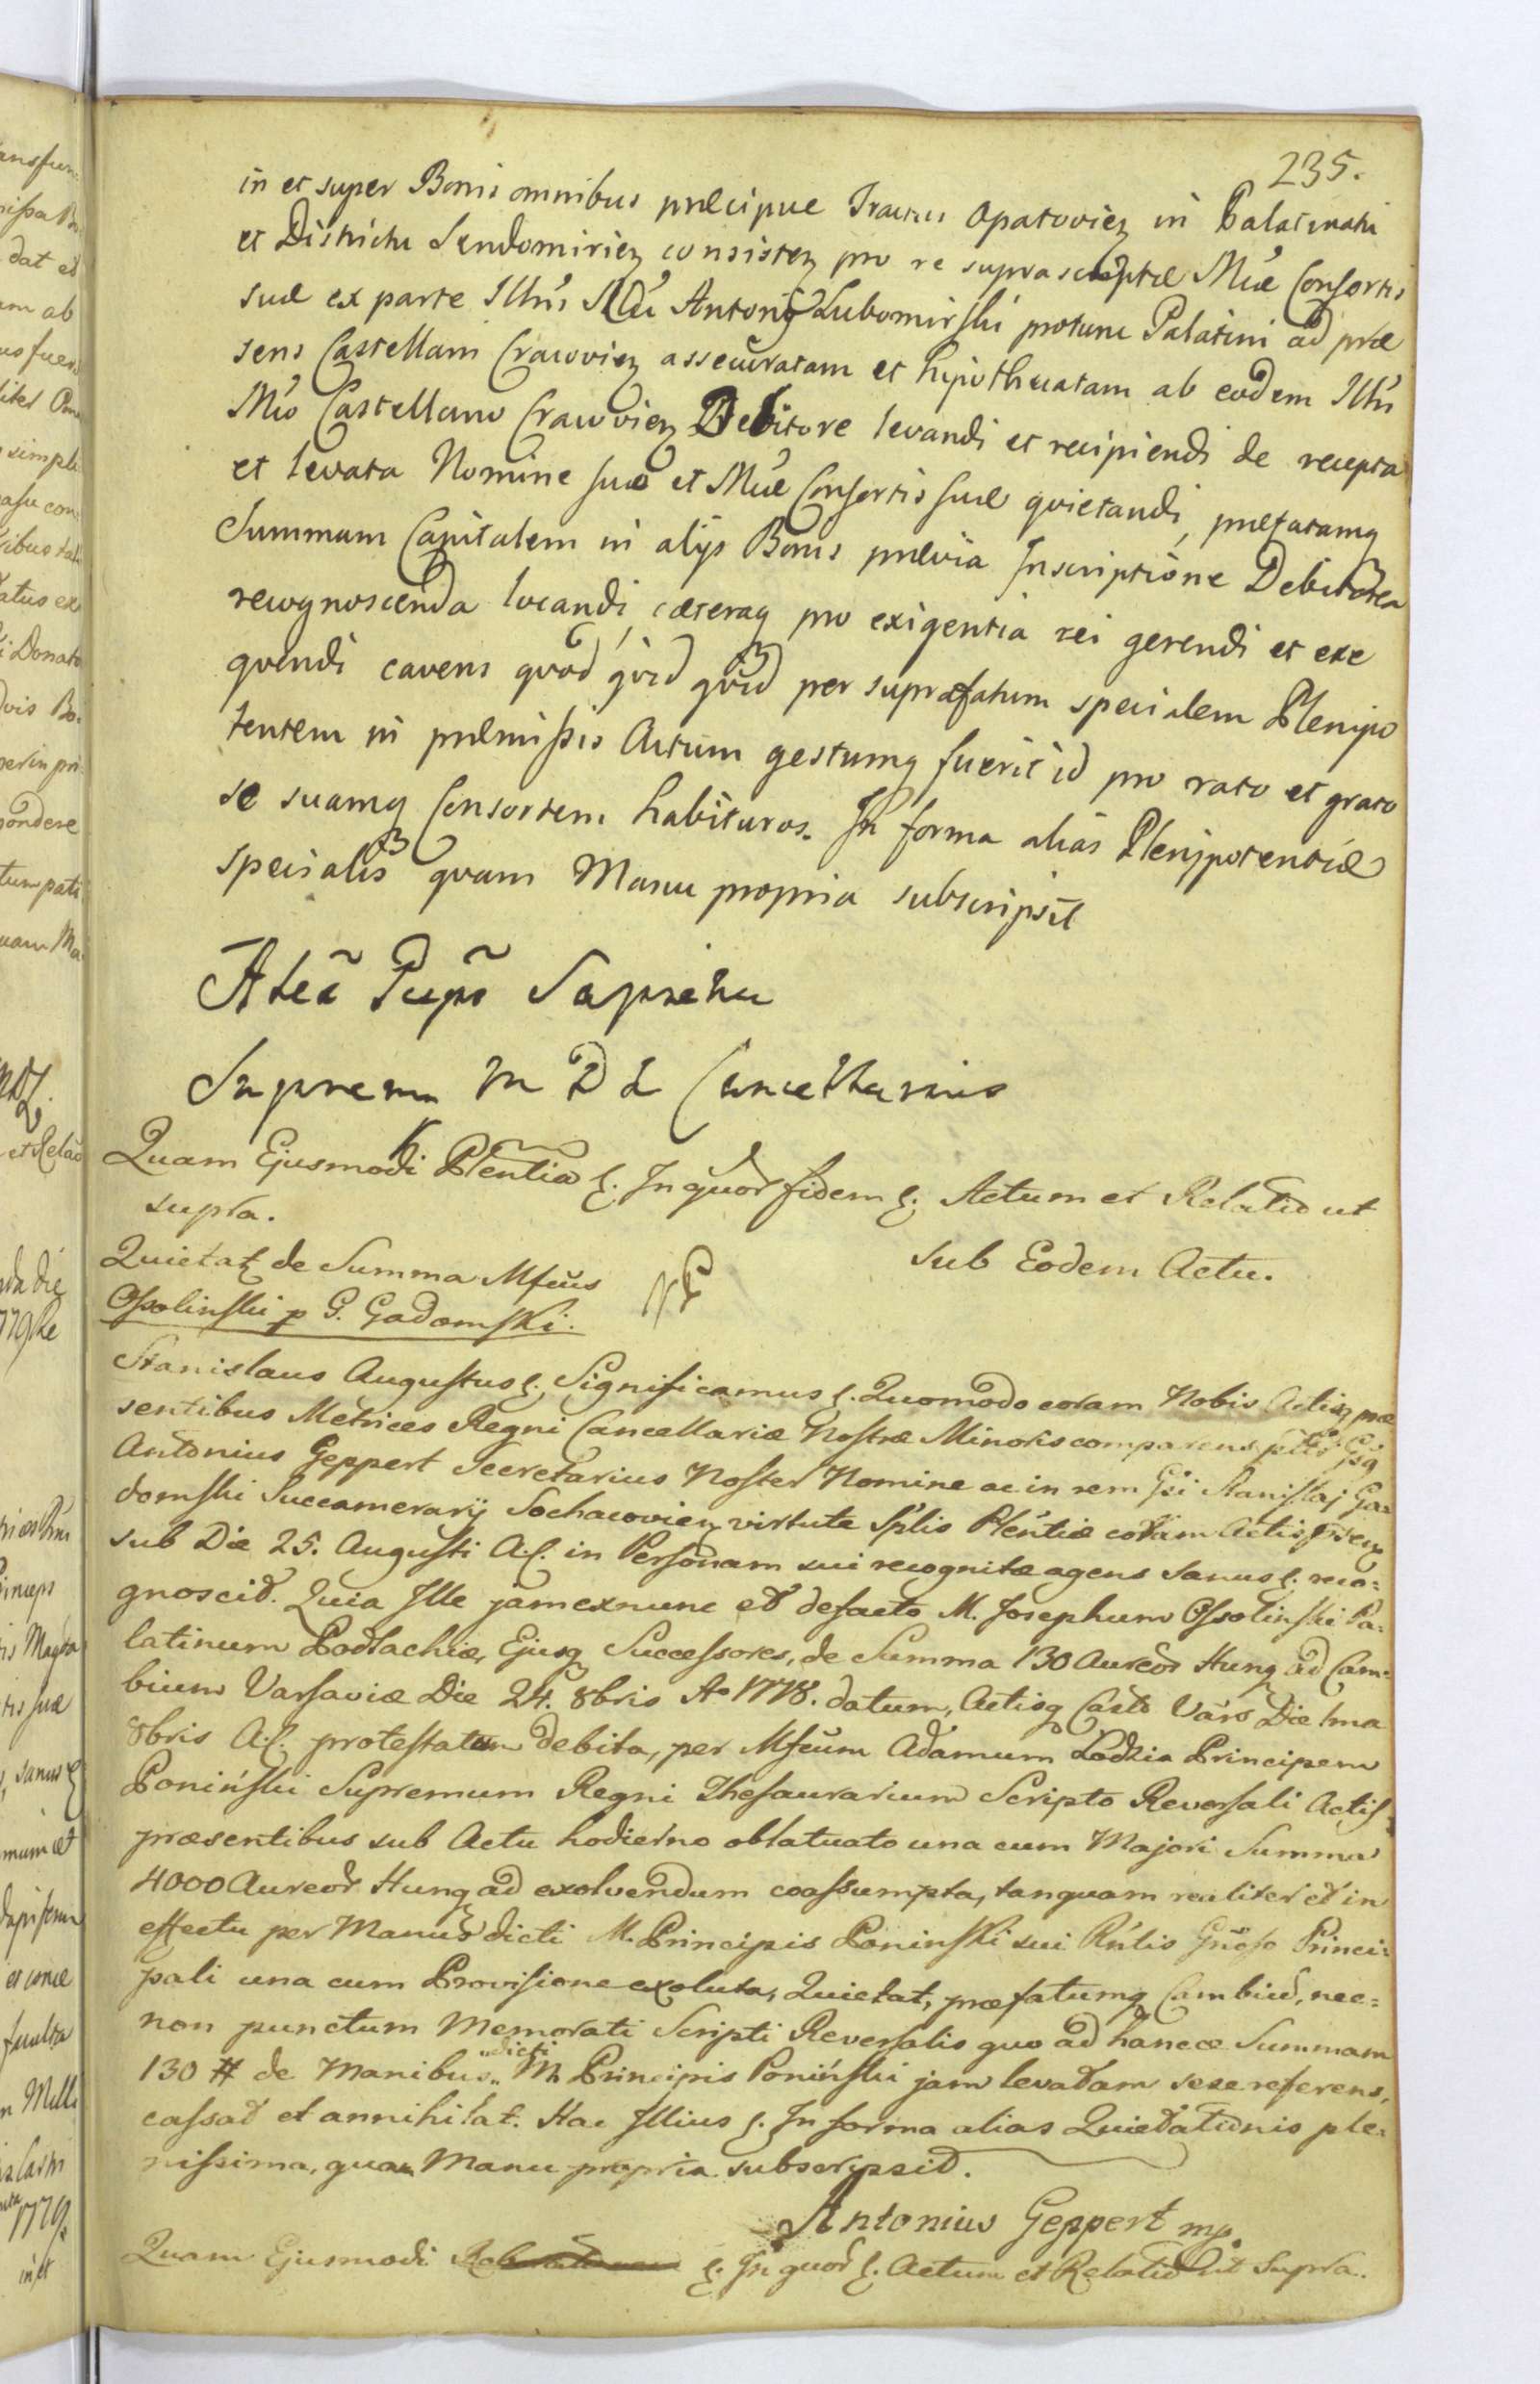 235.
in et super Bonis omnibus præcipue Tractus Opatovien in Palatinatu
et Districtu Sendomirien consisten pro re suprascriptæ Mcæ Consortis
suæ ex parte Illris Mci Antonij Lubomirski protunc Palatini ad præ
sens Castellani Cracovien assecuratam et hipothecatam ab eodem Illri
Mco Castellano Cracovien Debitore levandi et recipiendi de recepta
et levata Nomine suo et Mcæ Consortis suæ quietandi, præfatamq
Summam Capitalem in alijs Bonis prævia Inscriptione Debitorea
recognoscenda locandi, cæteraq pro exigentia rei gerendi et exe
quendi cavens quod quid quid per supræfatum specialem Plenipo
tentem in præmissis Actum gestumq fuerit id pro rato et grato
se suamq Consortem habituros. In forma alias Plenipotentiæ
specialis quam Manu propria subscripsit
Alex Sapieha
Suprem M D L Cancellarius
Quam Ejusmodi Plentia &. In quor fidem &. Actum et Relatio ut
supra.
sub Eodem Actu.
Quietat de Summa Mfcus
Ossolinski p G. Gadomski.
Stanislaus Augustus &. Significamus &. Quomodo coram Nobis Actisq præ
sentibus Metrices Regni Cancellariæ Nostræ Minoris comparens pslr Gsq
Antonius Geppert Secretarius Noster Nomine ac in rem Gsi Stanislaj Ga=
domski Succamerarij Sochacovien virtute Splis Plentiæ coram Actis psenq
sub Die 25. Augusti A. C. in Personam sui recognitæ agens Sanus &. reco=
gnoscit. Quia Ille jam ex nunc et de facto M. Josephum Ossolinski Pa=
latinum Podlachiæ, Ejusq Successores, de Summa 130 Aureor Hung ad Cam=
bium Varsaviæ Die 24. 8bris Ao 1778. datum, Actisq Castr Vars Die 1ma
8bris A. C. protestatum debita, per Mfcum Adamum Lodzia Principem
Poniński Supremum Regni Thesaurarium Scripto Reversali Actis
præsentibus sub Actu hodierno oblatuato una cum Majori Summa
4000 Aureor Hung ad exolvendum coassumpta, tanquam realiter et in
effectu per Manus dicti M. Principis Poninski sui Rntlis Gnoso Princi=
pali una cum Provisione exoluta, Quietat, præfatumq Cambiu, nec=
non punctum Memorati Scripti Reversalis quo ad hancce Summam
130 # de Manibus dicti M. Principis Poniński jam levatam sese referens,
cassat et annihilat. Hac Illius &. In forma alias Quietationis ple=
nissima, quam Manu propria subscripsit.
Antonius Geppert mp.
Quam Ejusmodi &. In quor &. Actum et Relatio ut Supra.